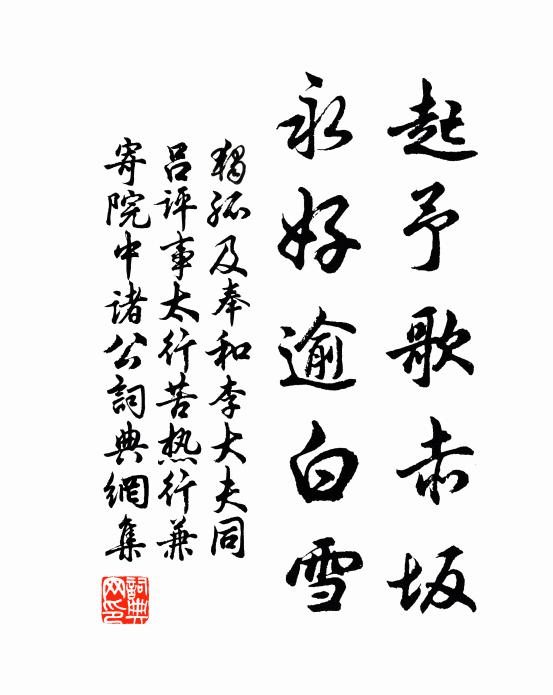 起予歌赤坂
永好逾白雪
獨孤及奉和李大夫同
呂評事太行苦热行兼
寄院中诸公詞典網集
詞典网印